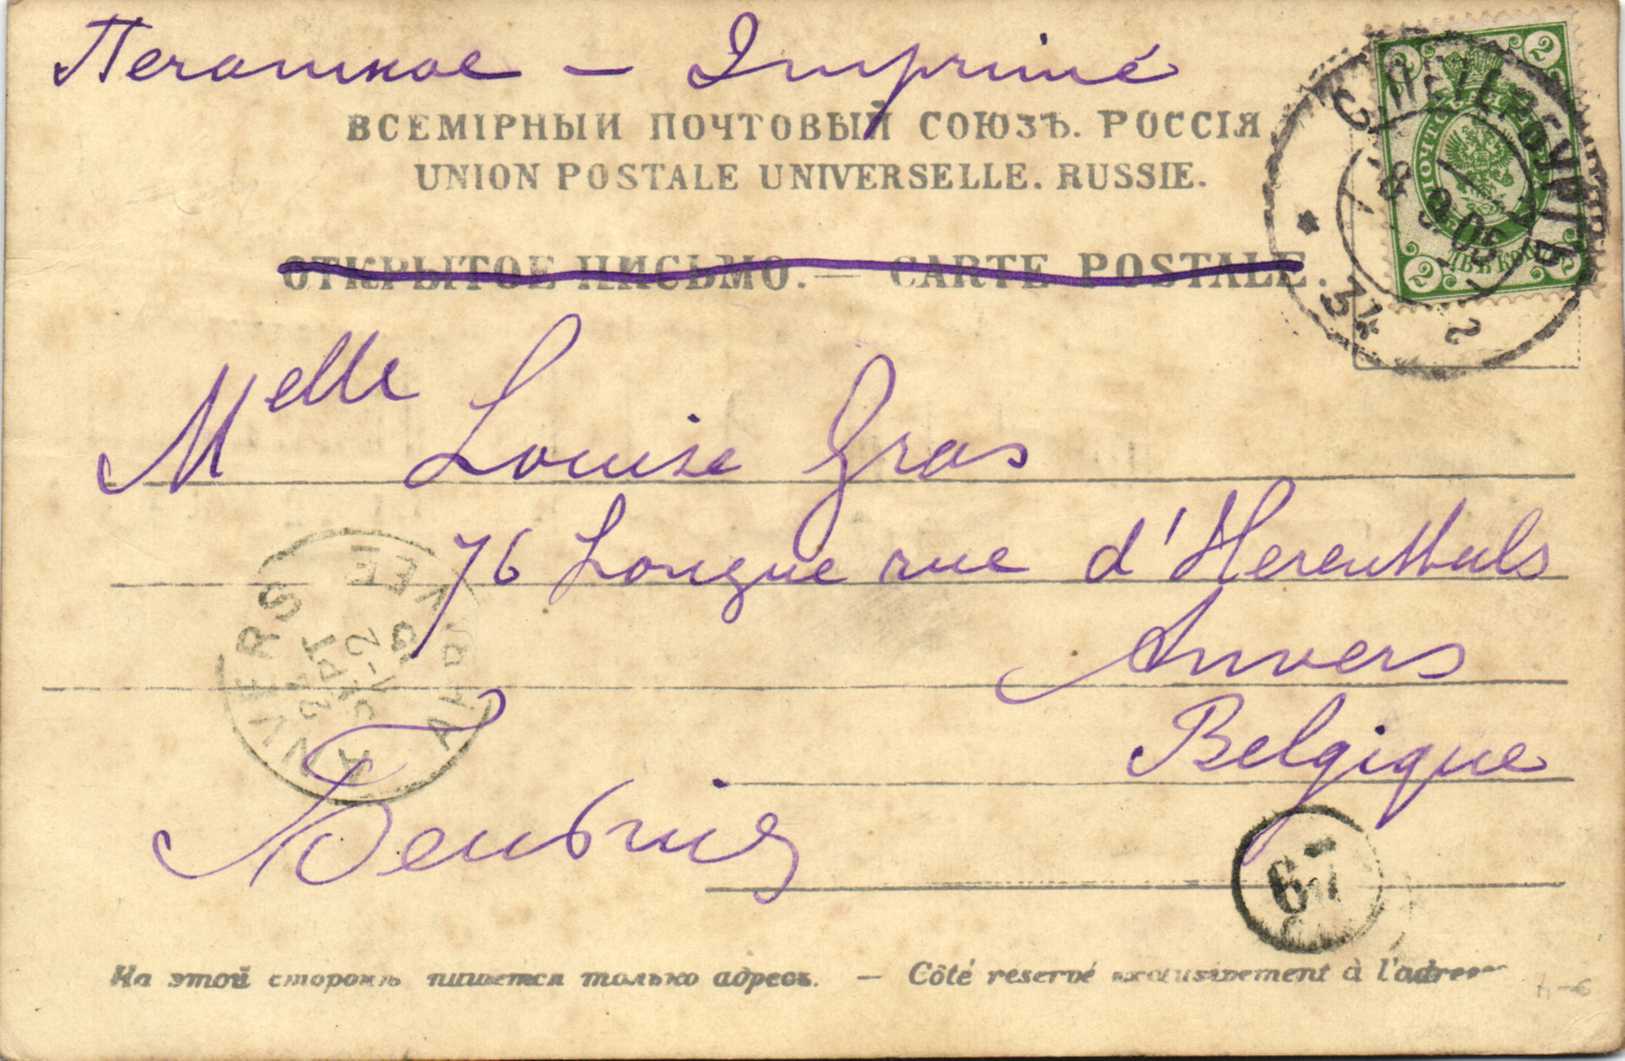 Печатное – Imprimé
ВСЕМІРНЫЙ ПОЧТОВЫЙ СОЮЗЪ. РОССІЯ
UNION POSTALE UNIVERSELLE. RUSSIE.
ОТКРЫТОЕ ПИСЬМО. — CARTE POSTALE.
2 2
С.ПЕТЕРБУРГЪ
8 9 05
34 2
2
Melle Louise Gras
76 Longue rue d'Herenthals
Anvers
Belgique
ANVERS
SEPT
67
На этой сторонѣ пишется только адресъ. — Côté reservé exclusivement à l'adresse